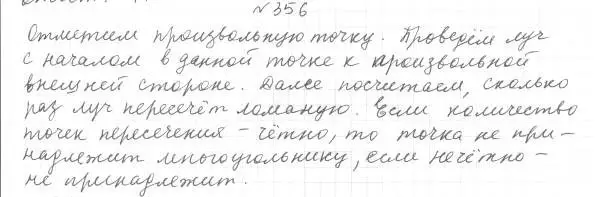 №356
Отметим произвольную точку. Проведём луч
с началом в данной точке к произвольной
внешней стороне. Далее посчитаем, сколько
раз луч пересечёт ломаную. Если количество
точек пересечения - чётно, то точка не при-
надлежит многоугольнику, если нечётно -
не принадлежит.